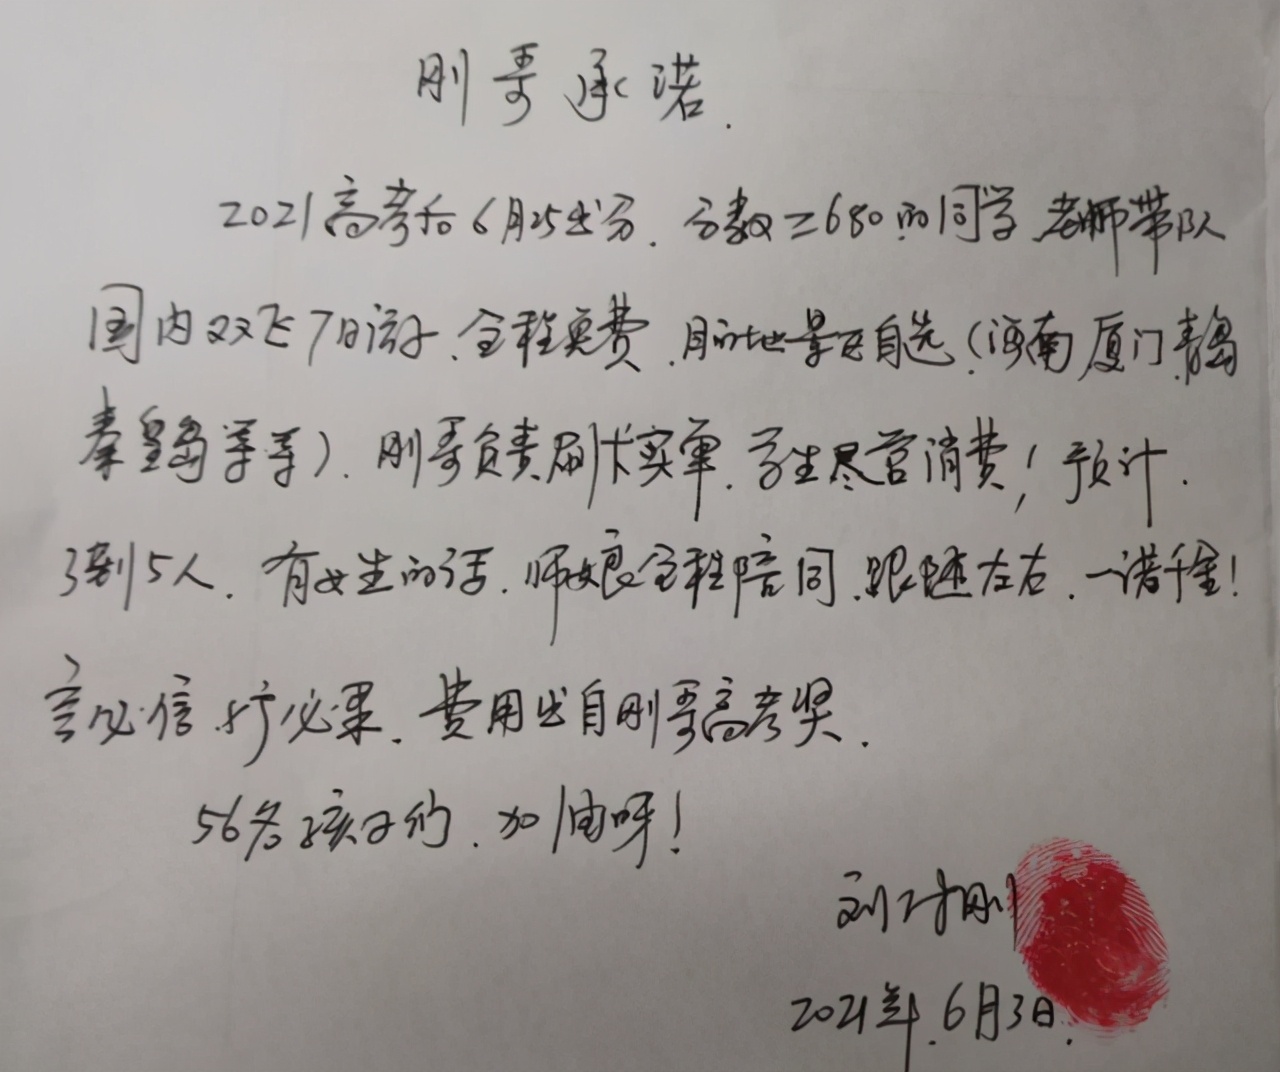 刚哥承诺.
2021高考后6月25出分.分数≥680的同学.老师带队
国内双飞7日游.全程免费.目的地景区自选(海南.厦门.青岛
秦皇岛等等).刚哥负责刷卡买单.学生尽管消费!预计.
3到5人.有女生的话.师娘全程陪同.跟随左右.一诺千金!
言必信.行必果.费用出自刚哥高考奖.
56名孩子们.加油呀!
刘刚
2021年.6月3日.